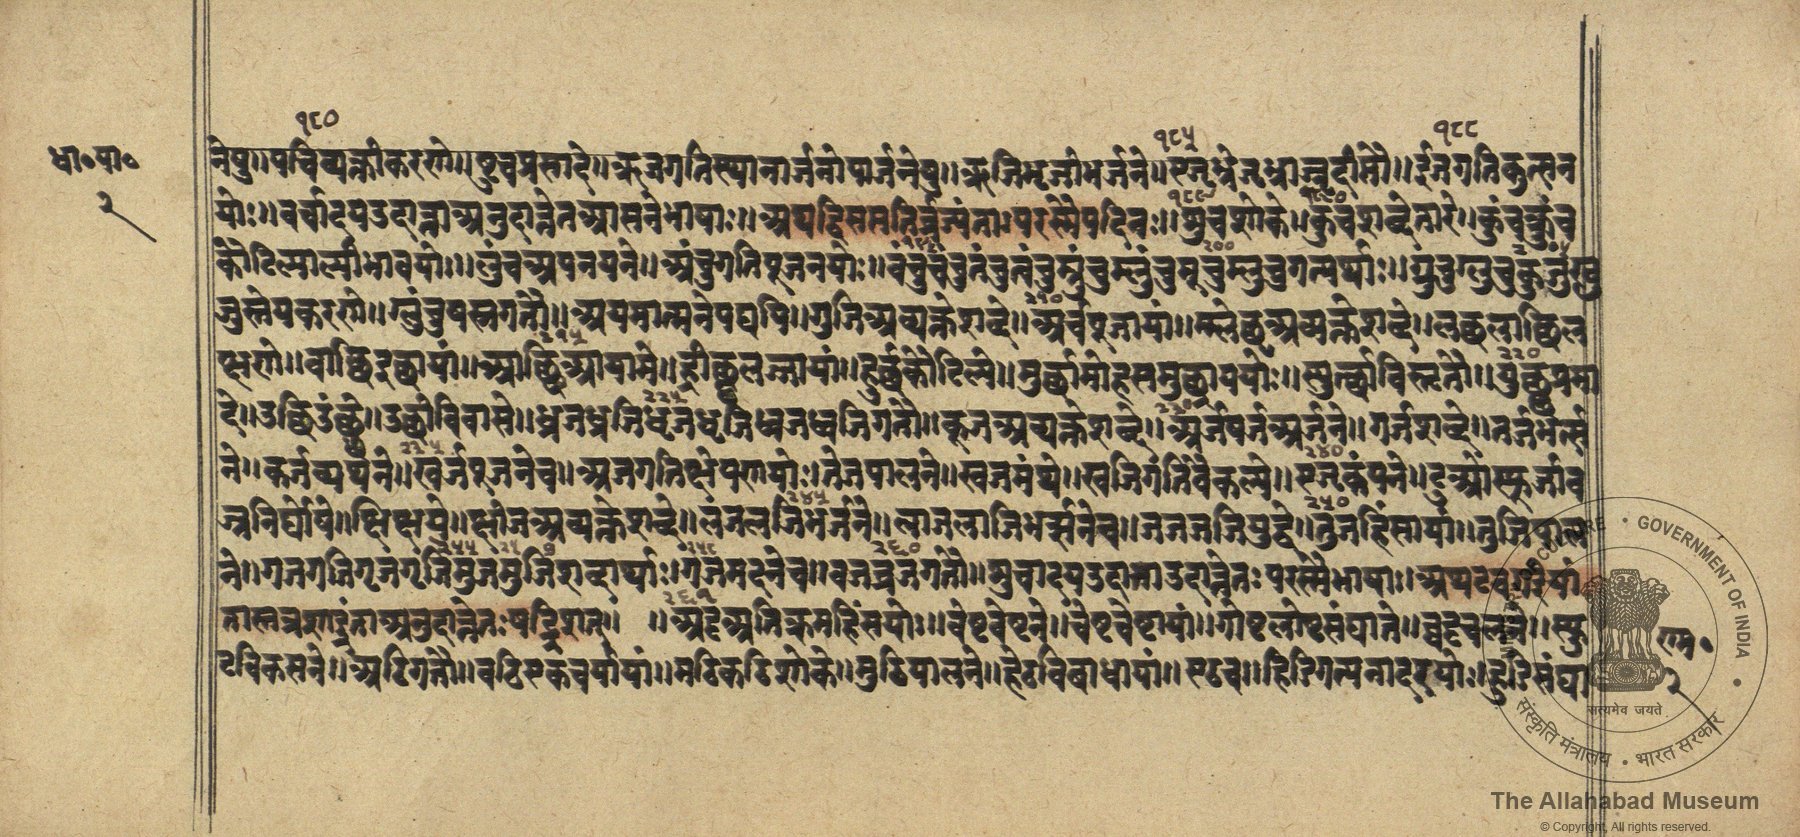 १८० १८५ १८८
धा॰पा॰
२
नेषु॥पचिव्यक्तीकरणे॥ष्टुचप्रसादे॥ऋजगतिस्थानार्जनोपार्जनेषु॥ऋजिभृजीभर्जने॥एजृभ्रेजृभ्राजृदीप्तौ॥ईजगतिकुत्सन
योः॥वर्चादयउदात्ताअनुदात्तेतआत्मनेभाषाः॥अथद्विसप्ततिर्व्रज्यंताःपरस्मैपदिनः॥शुचशोके॥कुचशब्देतारे॥कुंचक्रुंच
कौटिल्याल्पीभावयोः॥लुंचअपनयने॥अंचुगतिपूजनयोः॥वंचुचंचुतंचुत्वंचुम्रुंचुम्लुंचुम्रुचुम्लुचुगत्यर्थाः॥ग्रुचुग्लुचुकुजुखु
जुस्तेयकरणे॥ग्लुंचुषस्जगतौ॥अयमात्मनेपद्यपि॥गुजिअव्यक्तेशब्दे॥अर्चपूजायां॥म्लेछअव्यक्तेशब्दे॥लछलाछिल
क्षणे॥वाछिइछायां॥आछिआयामे॥ह्रीछलज्जायां॥हुर्छाकौटिल्ये॥मुर्छामोहसमुछ्राययोः॥स्फुर्छाविस्तृतौ॥युछप्रमा
दे॥उछिउंछे॥उछीविवासे॥ध्रजध्रजिधृजधृजिध्वजध्वजिगतौ॥कूजअव्यक्तेशब्दे॥अर्जषर्जअर्जने॥गर्जशब्दे॥तर्जभर्त्स
ने॥कर्जव्यथने॥खर्जपूजनेच॥अजगतिक्षेपणयोः॥तेजपालने॥खजमंथे॥खजिगतिवैकल्ये॥एजृकंपने॥टुओस्फूर्जाव
ज्रनिर्घोषे॥क्षिक्षये॥क्षीजअव्यक्तेशब्दे॥लजलजिभर्जने॥लाजलाजिभर्त्सनेच॥जजजजियुद्धे॥तुजहिंसायां॥तुजिपाल
ने॥गजगजिगृजगृजिमुजमुजिशब्दार्थाः॥गजमदनेच॥वजव्रजगतौ॥शुचादयउदात्ताउदात्तेतःपरस्मैभाषाः॥अथटवर्गीयां
ताःषट्त्रिंशत्॥ ॥अट्टअतिक्रमहिंसयोः॥वेष्टवेष्टने॥चेष्टचेष्टायां॥गोष्टलोष्टसंघाते॥घट्टचलने॥स्फु
टविकसने॥अठिगतौ॥वठिएकचर्यायां॥मठिकठिशोके॥मुठिपालने॥हेठविबाधायां॥एठच॥हिडिगत्यनादरयोः॥हुडिसंघा
राम॰
२
GOVERNMENT OF INDIA
सत्यमेव जयते
संस्कृति मंत्रालय • भारत सरकार
The Allahabad Museum
© Copyright, All rights reserved.